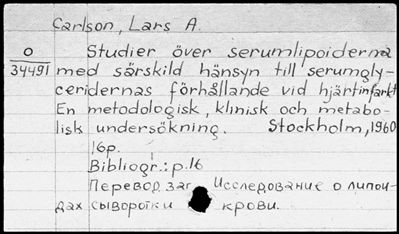 Carlson, Lars A.
O
34491
Studier över serumlipoiderna
med särskild hänsyn till serumgly-
ceridernas förhållande vid hjärtinfarkt
En metodologisk, klinisk och metabo-
lisk undersökning. Stockholm, 1960
16p.
Bibliogr.: p.16
Перевод заг. Исследование о липои-
дах сыворотки крови.